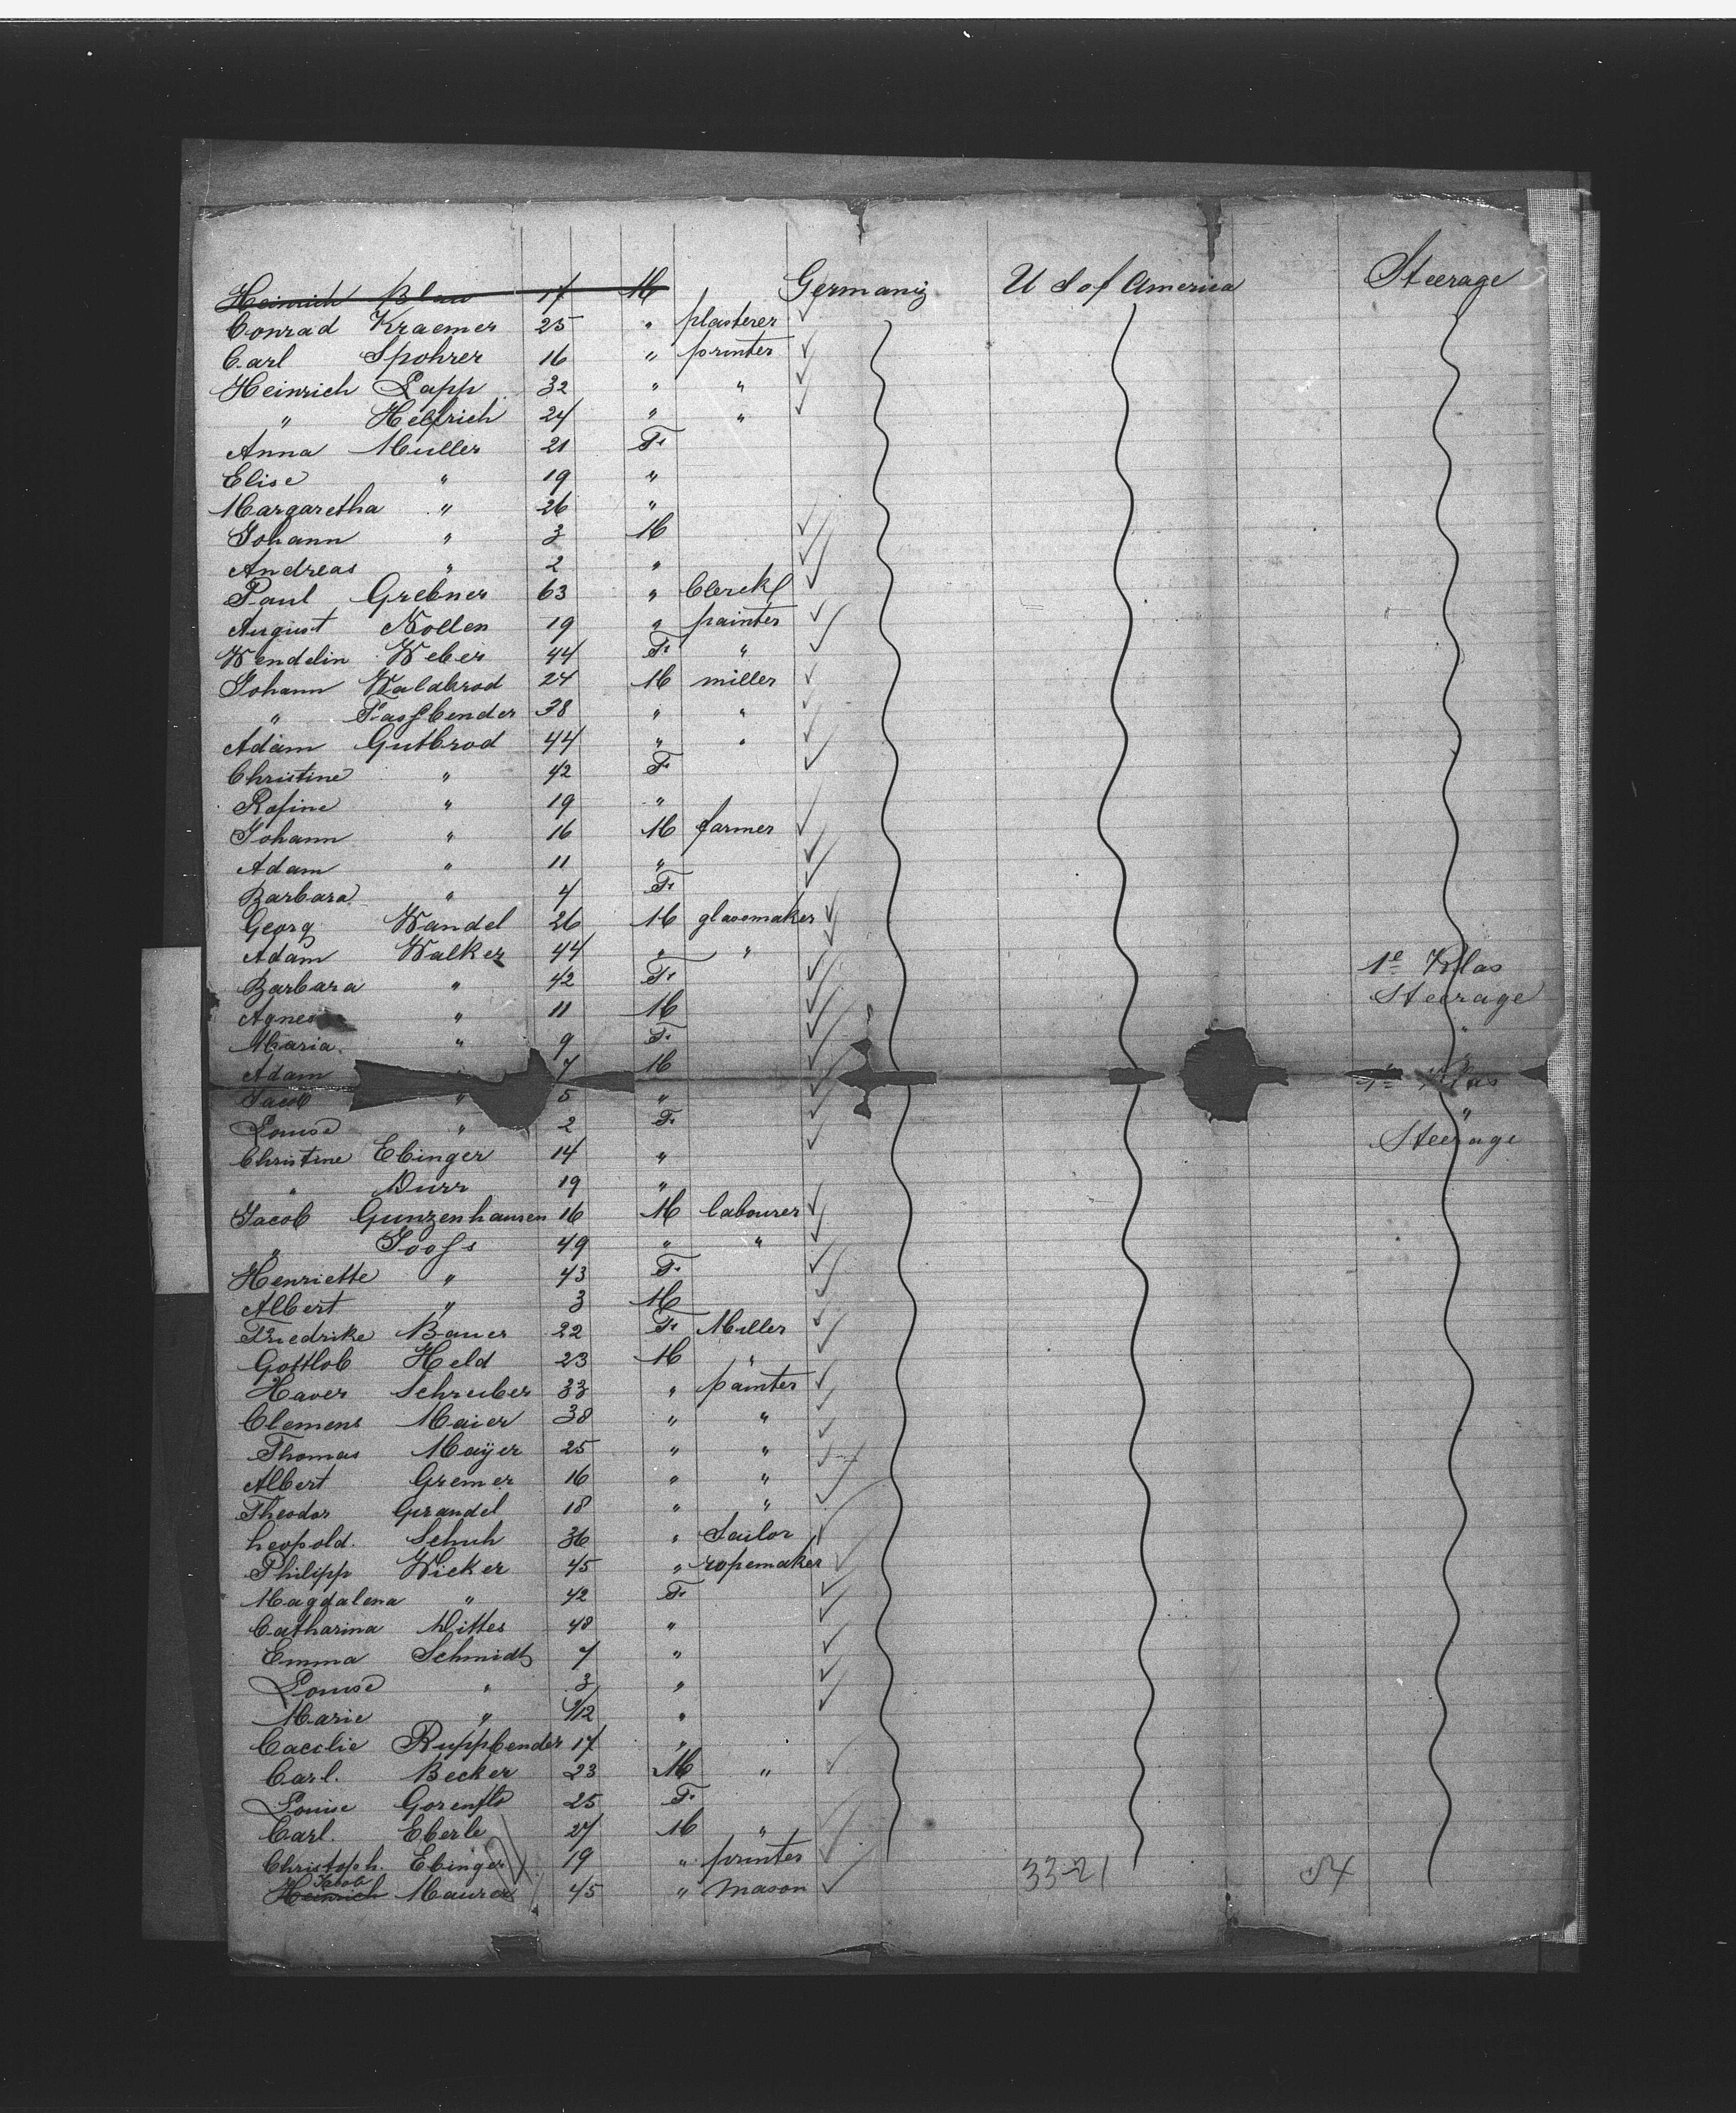 Heinrich Blau 17 M Germany U S of America Steerage
Conrad Kraemer 25 " plasterer
Carl Spohrer 16 " printer
Heinrich Lapp 32 " "
" Helfrich 24 " "
Anna Muller 21 F.
Elise " 19 "
Margaretha " 26 "
Johann " 3 M
Andreas " 2 "
Paul Grebner 63 " Clerck
August Nollen 19 " painter
Wendelin Weber 44 F. "
Johann Waldbrod 24 M miller
" Fassbender 38 " "
Adam Gutbrod 44 " "
Christine " 42 F.
Rosine " 19 "
Johann " 16 M farmer
Adam " 11 "
Barbara " 4 F.
Georg Wandel 26 M glasemaker
Adam Walker 44 " "
Barbara " 42 F. 1e Klas
Agnes " 11 M Steerage
Maria " 9 F. "
Adam 7 M "
Jacob " 5 " 1e Klas
Louise " 2 F. "
Christine Ebinger 14 " Steerage
" Durr 19 "
Jacob Gunzenhausen 16 M labourer
" Joofs 49 " "
Henriette " 43 F.
Albert " 3 M
Friedrike Bauer 22 F. Miller
Gottlob Held 23 M "
Xaver Schreiber 33 " painter
Clemens Maier 38 " "
Thomas Mayer 25 " "
Albert Gremer 16 " "
Theodor Grandel 18 " "
Leopold. Schuh 36 " Sailor
Philipp Wicker 45 " ropemaker
Magdalena " 42 F.
Catharina Mittes 48 "
Emma Schmidt 7 "
Louise " 3 "
Marie " 9/12 "
Caecilie Ruppbender 17 "
Carl. Becker 23 M "
Louise Gorenflo 25 F.
Carl. Eberle 27 M "
Christoph. Ebinger 19 " printer 33-21
Jacob
Heinrich Maurer 45 " Mason